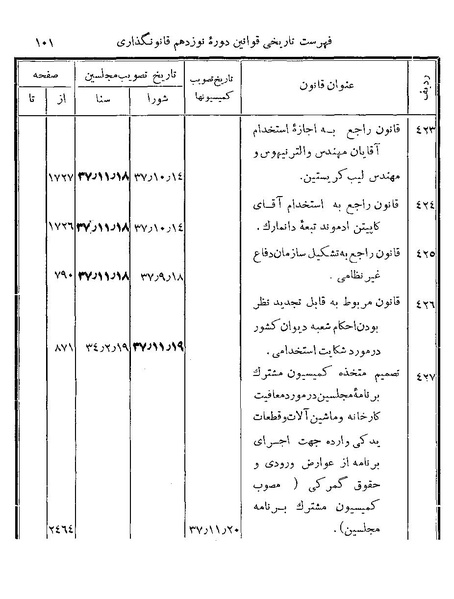 فهرست تاریخی قوانین دورهٔ نوزدهم قانونگذاری ۱۰۱
ردیف عنوان قانون تاریخ تصویب کمیسیونها تاریخ تصویب مجلسین صفحه
شورا سنا از تا
۴۲۳ قانون راجع به اجازهٔ استخدام
آقایان مهندس والتر نیهوس و
مهندس لیب کریستین. ۳۷٫۱۰٫۱۴ ۳۷٫۱۱٫۱۸ ۱۷۲۷
۴۲۴ قانون راجع به استخدام آقای
کاپیتن ادموند تبعهٔ دانمارك. ۳۷٫۱۰٫۱۴ ۳۷٫۱۱٫۱۸ ۱۷۲۶
۴۲۵ قانون راجع به تشکیل سازمان دفاع
غیر نظامی. ۳۷٫۹٫۱۸ ۳۷٫۱۱٫۱۸ ۷۹۰
۴۲۶ قانون مربوط به قابل تجدید نظر
بودن احکام شعبه دیوان کشور
در مورد شکایت استخدامی. ۳۷٫۱۱٫۱۹ ۳۴٫۲٫۱۹ ۸۷۱
۴۲۷ تصمیم متخذه کمیسیون مشترك
برنامهٔ مجلسین در مورد معافیت
کارخانه و ماشین آلات و قطعات
یدکی وارده جهت اجرای
برنامه از عوارض ورودی و
حقوق گمرکی ( مصوب
کمیسیون مشترك برنامه
مجلسین). ۳۷٫۱۱٫۲۰ ۲۴۶۴